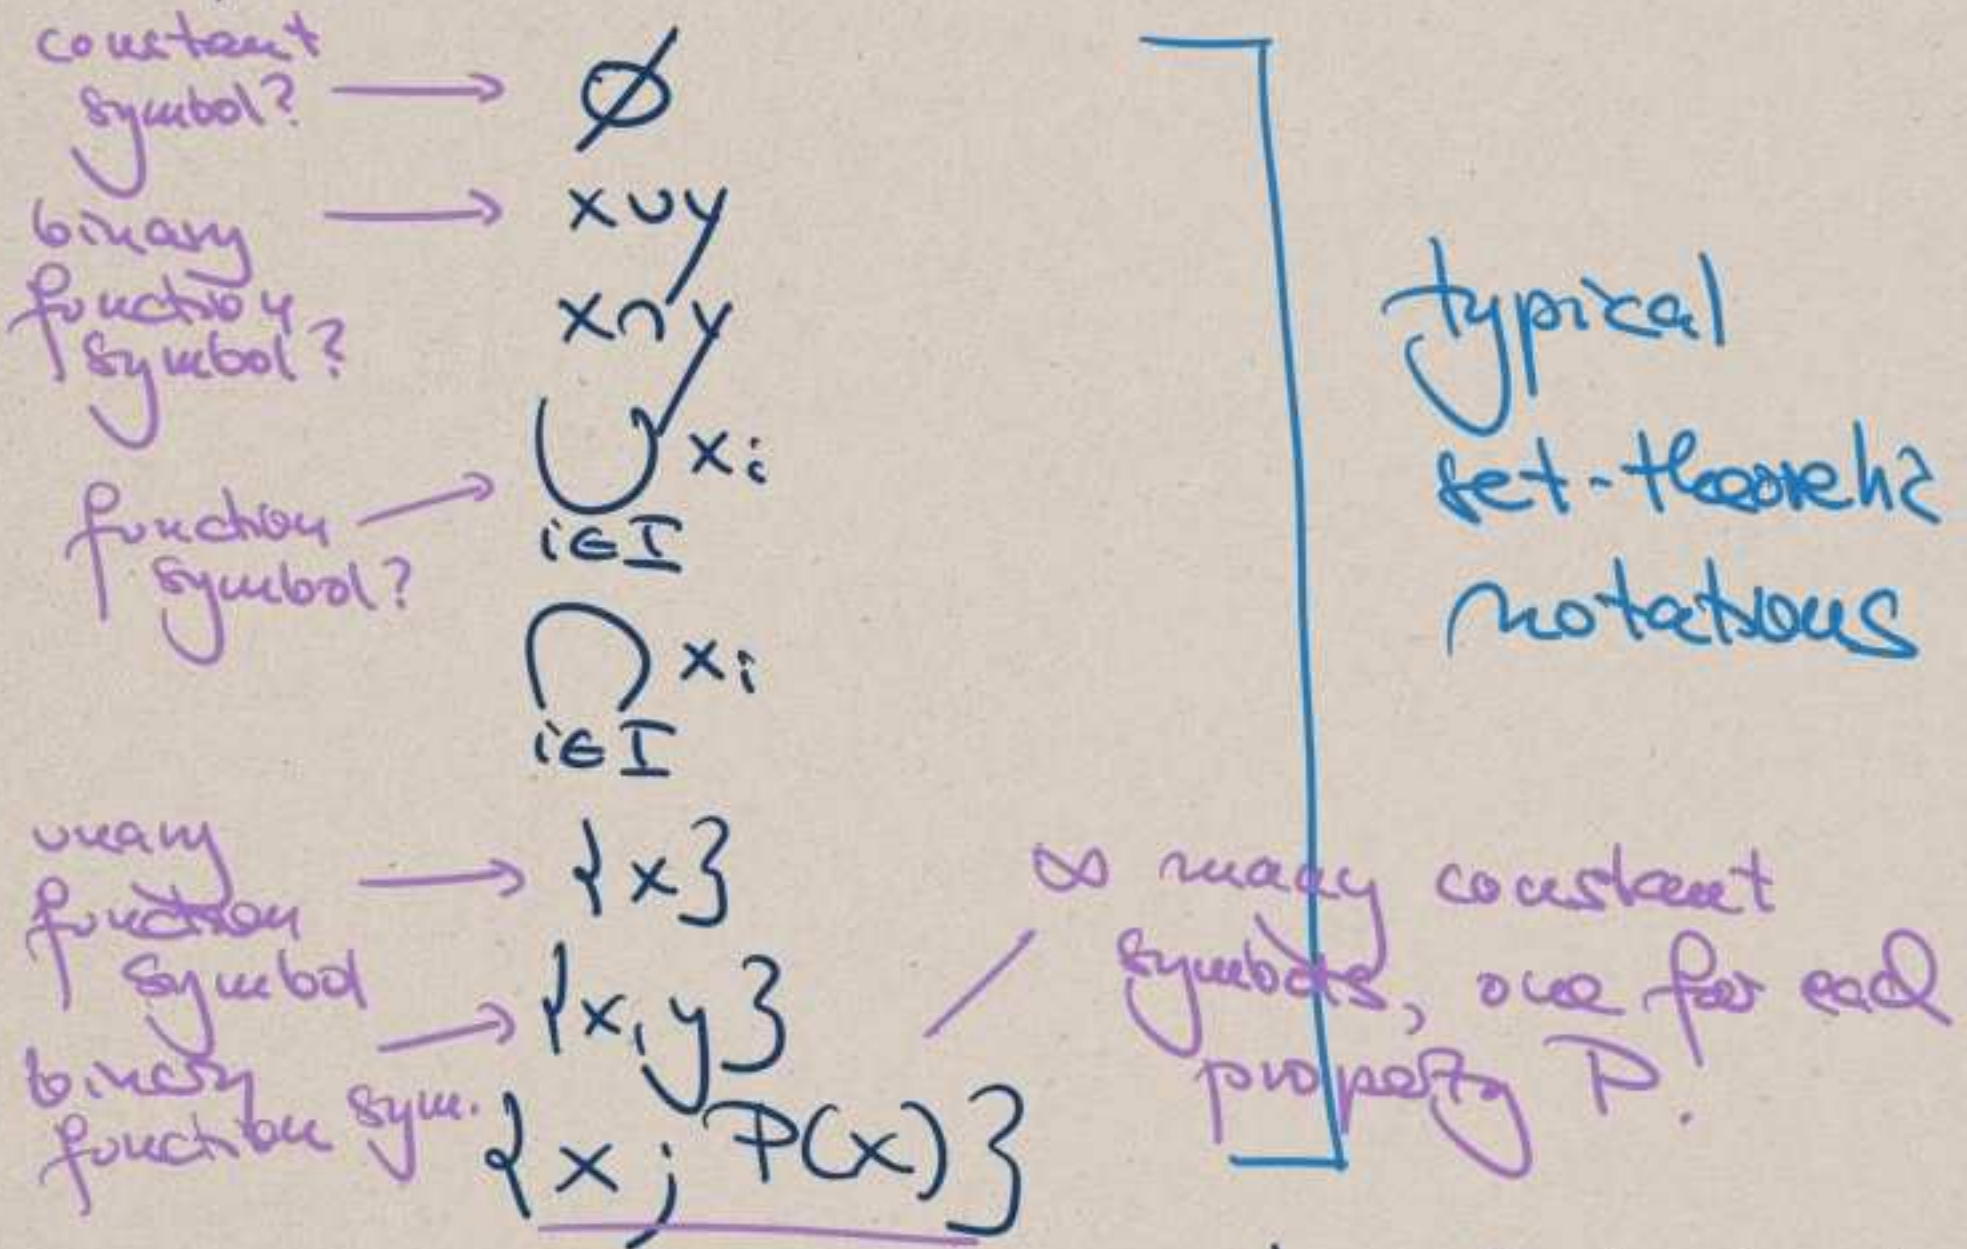 constant
symbol?
∅
binary
function
symbol?
x∪y
x∩y
function
symbol?
⋃ xᵢ
i∈I
⋂ xᵢ
i∈I
unary
function
symbol
{x}
binary
function sym.
{x,y}
{x; P(x)}
typical
set-theoretic
notations
∞ many constant
symbols, one for each
property P.